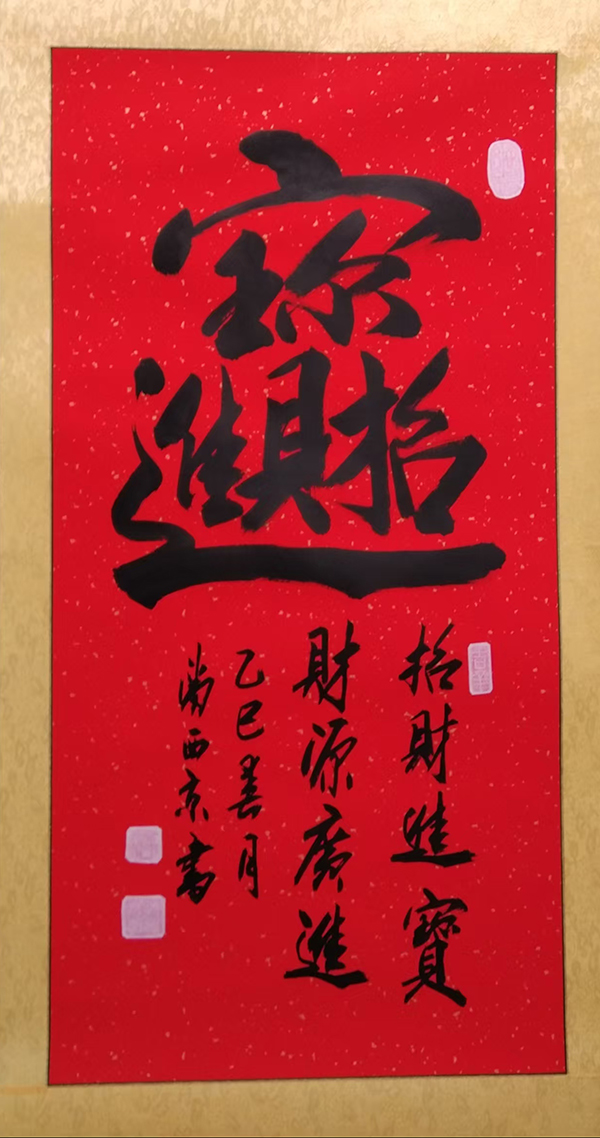 招財進寶
招財進寶
財源廣進
乙巳春月
西京書